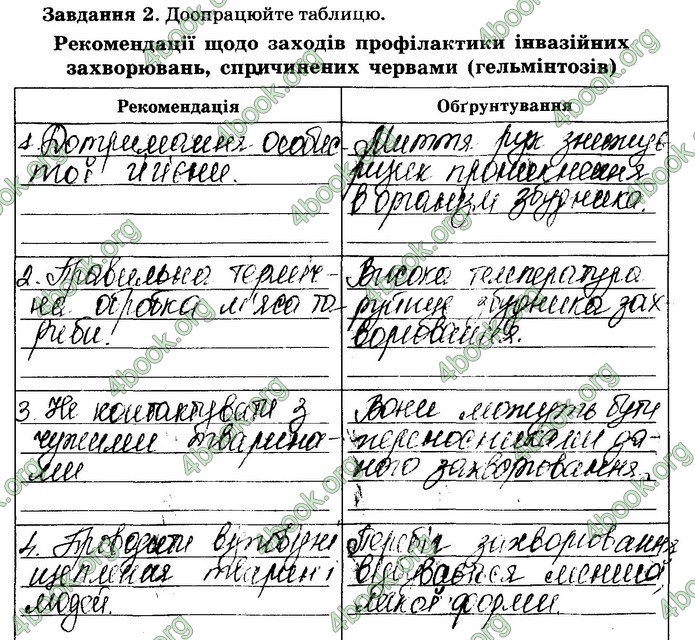 Завдання 2. Доопрацюйте таблицю.
Рекомендації щодо заходів профілактики інвазійних
захворювань, спричинених червами (гельмінтозів)
Рекомендація
Обґрунтування
1. Дотримання особис-
тої гігієни.
Миття рук знижує
ризик проникнення
в організм збудника.
2. Правильна терміч-
на обробка м'яса та
риби.
Висока температура
руйнує збудника зах
ворювання.
3. Не контактувати з
чужими тварина-
ми
Вони можуть бути
переносниками да-
ного захворювання.
4. Проводити
щеплення тварин і
людей.
Перебіг захворювання
відбувається
легкої форми.
4book.org